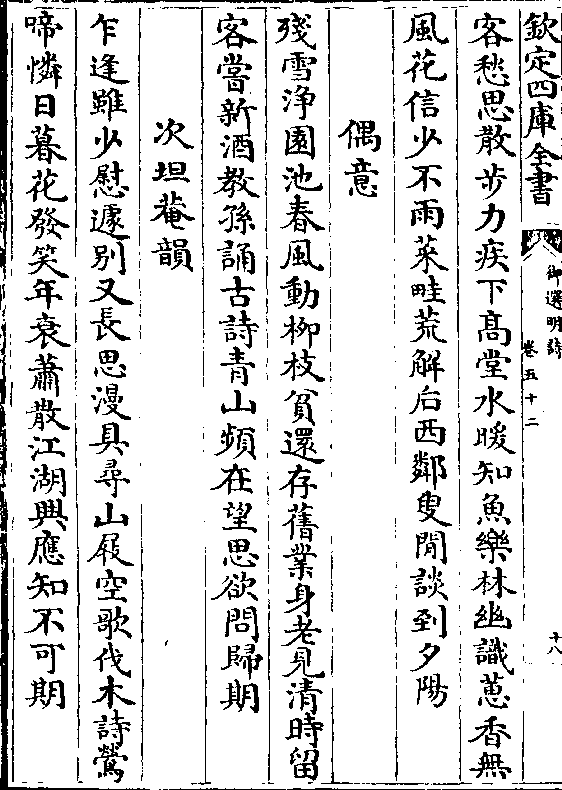 欽定四庫全書
御選明詩
卷五十二
十八
客愁思散步力疾下高堂水暖知魚樂林幽識蕙香無
風花信少不雨菜畦荒解后西鄰叟閒談到夕陽
偶意
殘雪浄園池春風動柳枝貧還存舊業身老見清時留
客嘗新酒教孫誦古詩青山頻在望思欲問歸期
次坦菴韻
乍逢雖少慰遽别又長思漫具尋山屐空歌伐木詩鶯
啼憐日暮花發笑年衰蕭散江湖興應知不可期